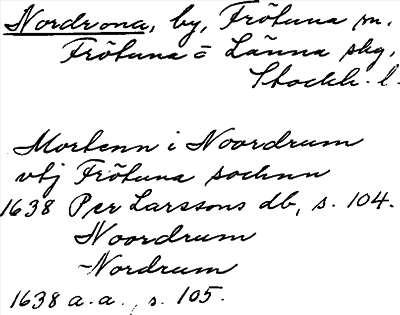 Nordrona, by, Frötuna sn.
Frötuna o Länna skg,
Stockh. l.
Mortenn i Noordrum
vtj Frötuna sochnn
1638 Per Larssons db, s. 104.
Noordrum
-Nordrum
1638 a.a., s. 105.